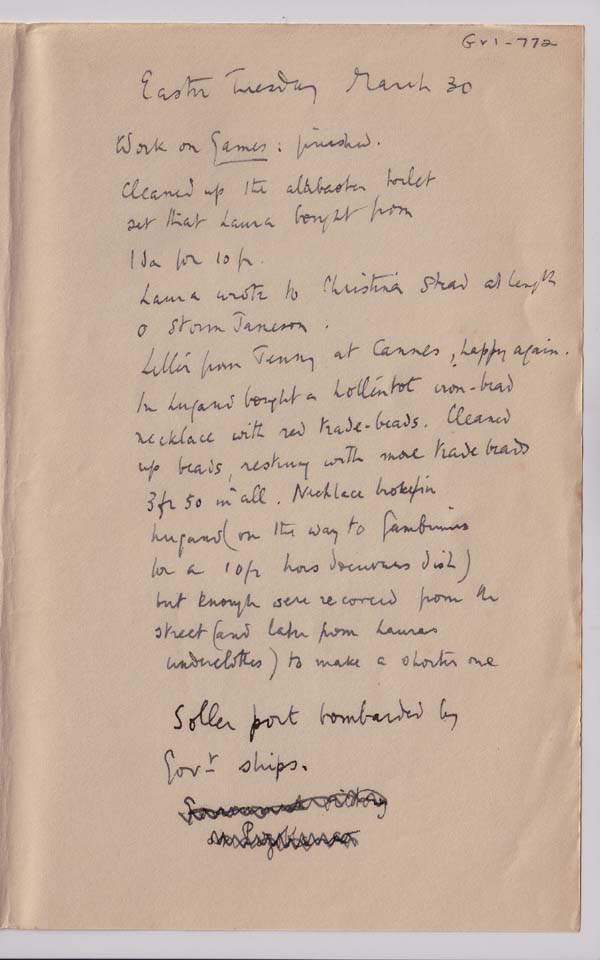 Gr1-772
Easter Tuesday March 30
Work on Games: finished.
Cleaned up the alabaster toilet
set that Laura bought from
Ida for 10 fr.
Laura wrote to Christina Stead at length
& Storm Jameson.
Letter from Jenny at Cannes, happy again.
In Lugano bought a hottentot iron-bead
necklace with red trade-beads. Cleaned
up beads, restrung with more trade beads
3 fr 50 in all. Necklace broke in
Lugano (on the way to Gambrinus
for a 10 fr hors d'oeuvres dish)
but enough were recovered from the
street (and later from Lauras
underclothes) to make a shorter one
Soller port bombarded by
Govt ships.
victory